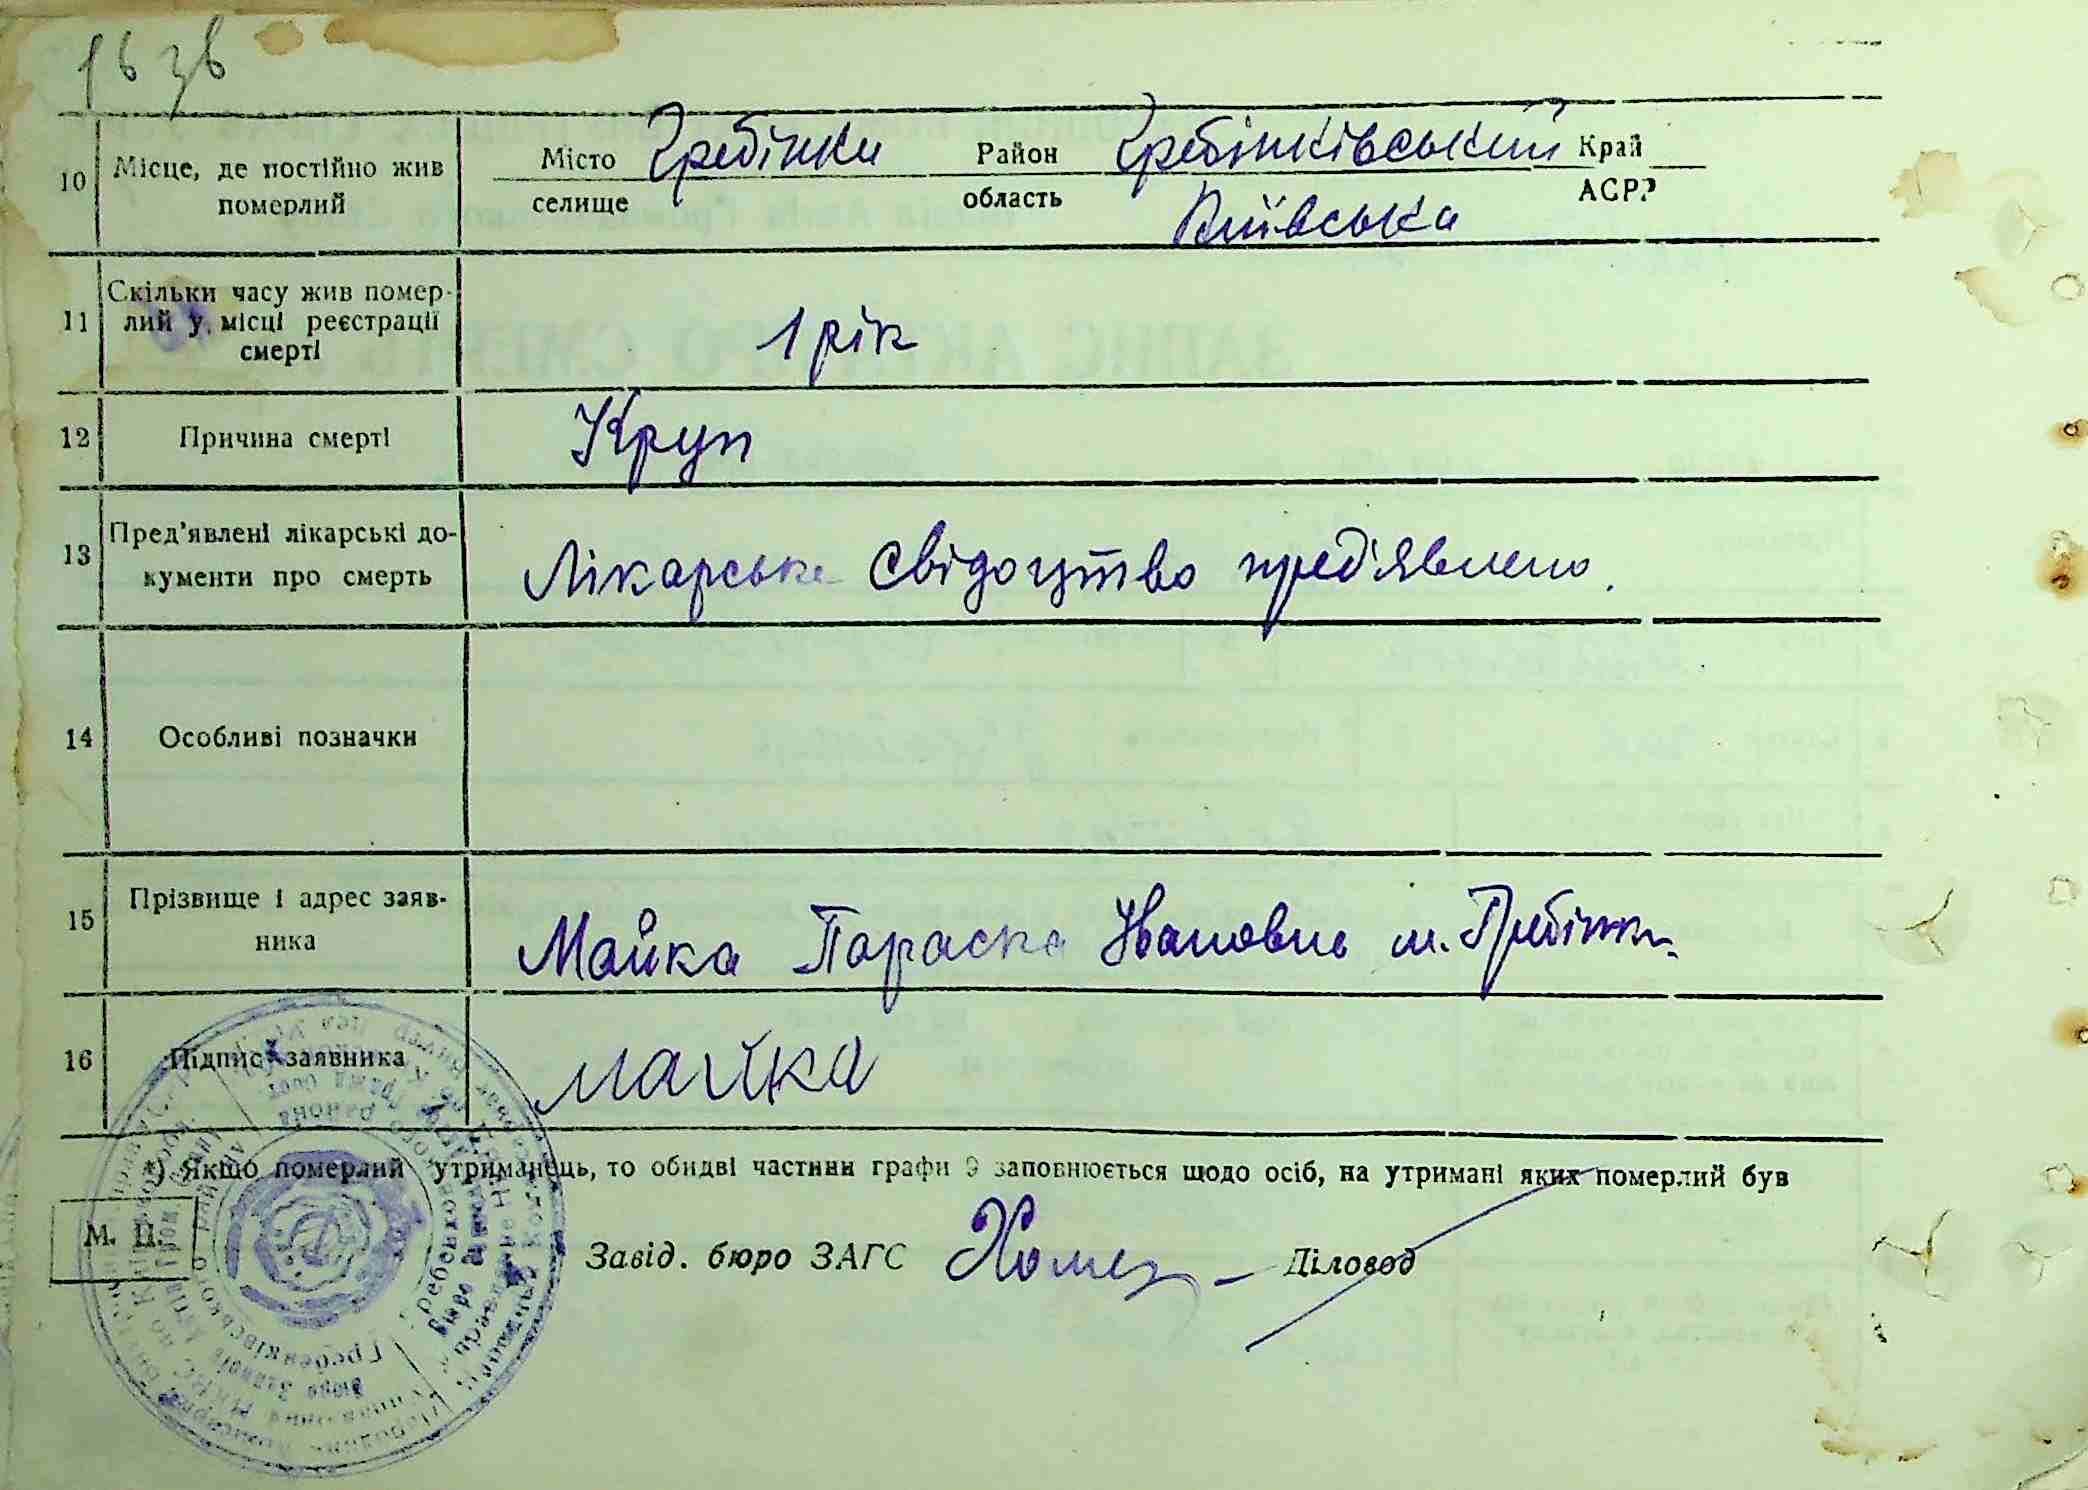 16 зв
10 Місце, де постійно жив померлий Місто селище Гребінки Район область Гребінківський Київська Край АСРР
11 Скільки часу жив померлий у місці реєстрації смерті 1 рік
12 Причина смерті Круп
13 Пред'явлені лікарські документи про смерть Лікарське свідоцтво пред'явлено.
14 Особливі позначки
15 Прізвище і адрес заявника Майка Параска Івановна м. Гребінки
16 Підпис заявника Майка
*) Якщо померлий утриманець, то обидві частини графи 9 заповнюється щодо осіб, на утримані яких померлий був
М. П.
Завід. бюро ЗАГС Діловод